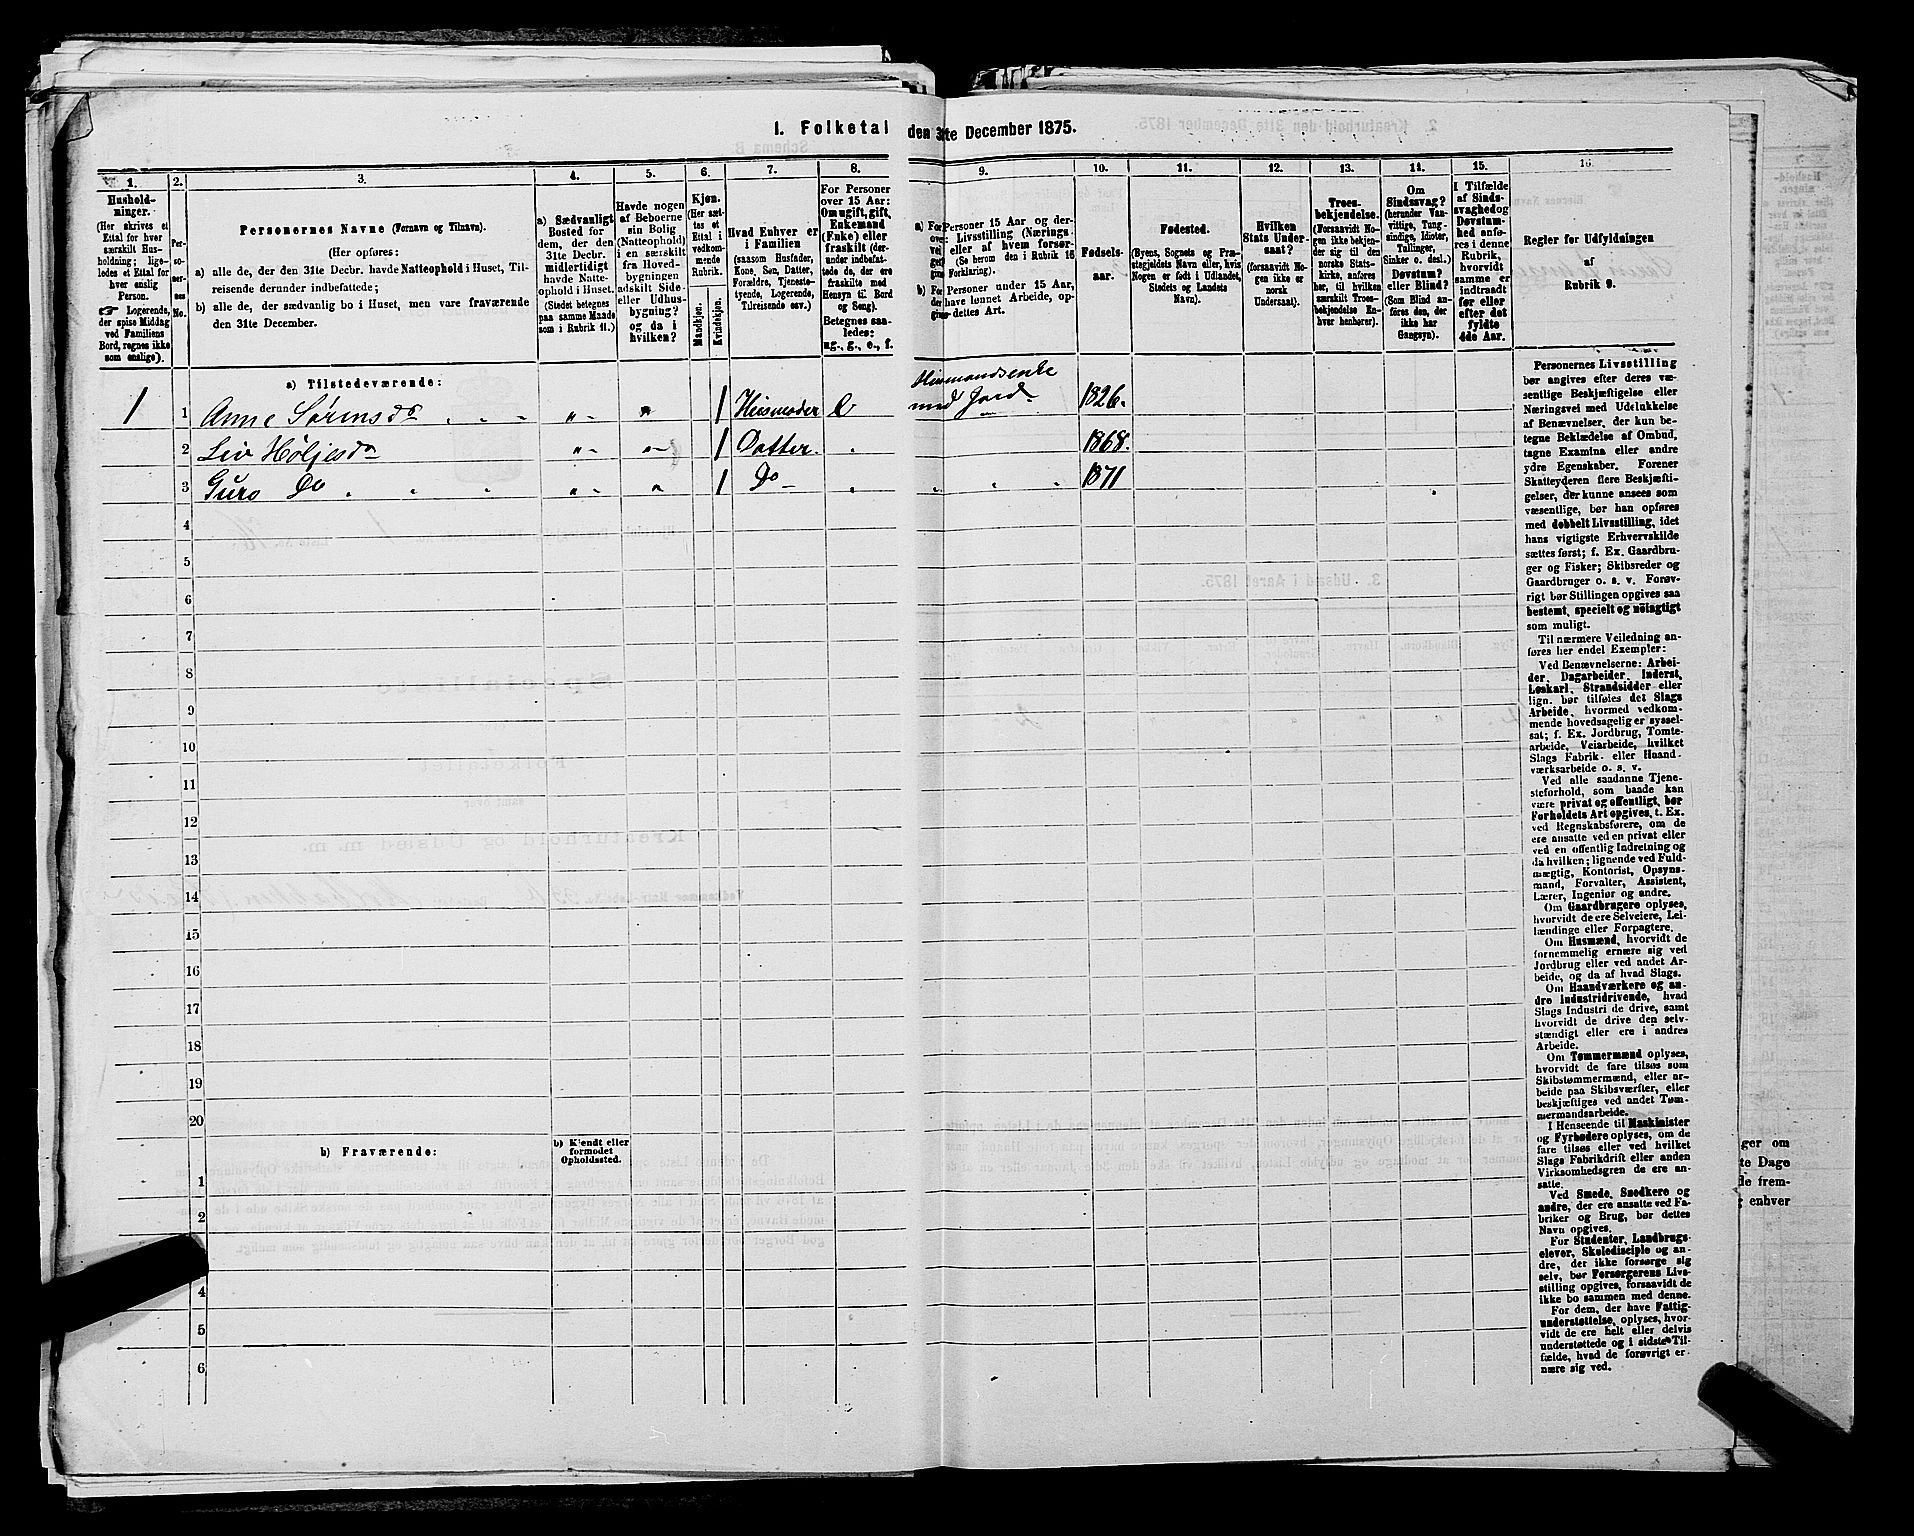 I. Folketal den 31te December 1875.
1. 2. 3. 4. 5. 6. 7. 8. 9. 10. 11. 12. 13. 14. 15. 16.
Hushold-
ninger.
(Her skrives et
Ettal for hver
særskilt Hus-
holdning; lige-
ledes et Ettal for
hver enslig
Person.
☞ Logerende,
der spise Middag
ved Familiens
Bord, regnes ikke
som enslige).
Per-
so-
ner-
nes
No.
Personernes Navne (Fornavn og Tilnavn).
(Her opføres:
a) alle de, der den 31te Decbr. havde Natteophold i Huset, Til-
reisende derunder indbefattede;
b) alle de, der sædvanlig bo i Huset, men vare fraværende
den 31te December.
a) Sædvanligt
Bosted for
dem, der den
31te Decbr.
midlertidigt
havde Natte-
ophold i Huset.
(Stedet betegnes
paa samme Maade
som i Rubrik 11.)
Havde nogen
af Beboerne
sin Bolig
(Natteophold)
i en særskilt
fra Hoved-
bygningen
adskilt Side-
eller Udhus-
bygning?
og da i
hvilken?
Kjøn.
(Her sæt-
tes et
Ettal i
vedkom-
mende
Rubrik.
Mandkjøn.
Kvindekjøn.
Hvad Enhver er
i Familien
(saasom Husfader,
Kone, Søn, Datter,
Forældre, Tjeneste-
tyende, Logerende,
Tilreisende osv.)
For Personer
over 15 Aar:
Om ugift, gift,
Enkemand
(Enke) eller
fraskilt (der-
under indbefat-
tede de, der ere
fraskilte med
Hensyn til Bord
og Seng).
Betegnes saa-
ledes:
ug., g., e., f.
a) For Personer 15 Aar og der-
over Livsstilling (Nærings-
vei eller af hvem forsør-
get). (Se herom den i Rubrik 16
givne Forklaring).
b) For Personer under 15 Aar,
der have lønnet Arbeide, op-
gives dettes Art.
Fødsels-
aar.
Fødested.
(Byens, Sognets og Præ-
stegjeldets Navn eller, hvis
Nogen er født i Udlandet,
Stedets og Landets
Navn).
Hvilken
Stats Under-
saat?
(forsaavidt No-
gen ikke er
norsk
Undersaat).
Troes-
bekjendelse.
(Forsaavidt No-
gen ikke bekjen-
der sig til den
norske Stats-
kirke, anføres
her, til hvilken
særskilt Troes-
bekjendelse En-
hver henhører).
Om
Sindssvag?
(herunder Van-
vittige, Tung-
sindige, Idioter,
Tullinger,
Sinker o. desl.)
Døvstum?
eller Blind?
(Som Blind an-
føres den, der
ikke har
Gangsyn).
I Tilfælde
af Sinds-
svaghed og
Døvstum-
hed anfø-
res i denne
Rubrik,
hvorvidt
samme er
indtraadt
før eller
efter det
fyldte
4de Aar.
Regler for Udfyldningen
af
Rubrik 9.
a) Tilstedeværende:
1 1 Anne Sørensda " " 1 Husmoder e Husmandsenke
med Jord 1826.
2 Liv Høljesda " " 1 Datter. 1868.
3 Guro Do " " 1 Do 1871
4
5
6
7
8
9
10
11
12
13
14
15
16
17
18
19
20
b) Fraværende:
b) Kjendt eller
formodet
Opholdssted.
1
2
4
5
6
Personernes Livsstilling
bør angives efter deres væ-
sentlige Beskjæftigelse eller
Næringsvei med Udelukkelse
af Benævnelser, der kun be-
tegne Beklædelse af Ombud,
tagne Examina eller andre
ydre Egenskaber. Forener
Skatteyderen flere Beskjæfti-
gelser, der kunne ansees som
væsentlige, bør han opføres
med dobbelt Livsstilling, idet
hans vigtigste Erhvervskilde
sættes først; f. Ex. Gaardbru-
ger og Fisker; Skibsreder og
Gaardbruger o. s. v. Forøv-
rigt bør Stillingen opgives saa
bestemt, specielt og nøiagtigt
som muligt.
Til nærmere Veiledning an-
føres her endel Exempler:
Ved Benævnelserne: Arbei-
der, Dagarbeider, Inderst,
Løskarl, Strandsidder eller
lign. bør tilføies det Slags
Arbeide, hvormed vedkom-
mende hovedsagelig er syssel-
sat; f. Ex. Jordbrug, Tomte-
arbeide, Veiarbeide, hvilket
Slags Fabrik- eller Haand-
værksarbeide o. s. v.
Ved alle saadanne Tjene-
steforhold, som baade kan
være privat og offentligt, bør
Forholdets Art opgives, t. Ex.
ved Regnskabsførere, om de
ere ansatte ved en privat eller
ved en offentlig Indretning og
da hvilken; lignende ved Fuld-
mægtig, Kontorist, Opsyns-
mand, Forvalter, Assistent,
Lærer, Ingeniør og andre.
Om Gaardbrugere oplyses,
hvorvidt de ere Selveiere, Lei-
lændinge eller Forpagtere.
Om Husmænd, hvorvidt de
fornemmelig ernære sig ved
Jordbrug eller ved andet Ar-
beide, og da af hvad Slags.
Om Haandværkere og an-
dre Industridrivende, hvad
Slags Industri de drive, samt
hvorvidt de drive den selv-
stændigt eller ere i andres
Arbeide.
Om Tømmermænd oplyses,
hvorvidt de fare tilsøs som
Skibstømmermænd, eller ar-
beide paa Skibsværfter, eller
beskjæftiges ved andet Tøm-
mermandsarbeide.
I Henseende til Maskinister
og Fyrbødere oplyses, om de
fare tilsøs eller ved hvilket
Slags Fabrikdrift eller anden
Virksomhedsgren de ere an-
satte.
Ved Smede, Snedkere og
andre, der ere ansatte ved Fa-
briker og Brug, bør dettes
Navn opgives.
For Studenter, Landbrugs-
elever, Skoledisciple og an-
dre, der ikke forsørge sig
selv, bør Forsørgerens Livs-
stilling opgives, forsaavidt de
ikke bo sammen med denne.
For dem, der have Fattig-
understøttelse, oplyses, hvor-
vidt de ere helt eller delvis
understøttede og i sidste Til-
fælde, hvad de forøvrigt er-
nære sig ved.
ger om
te Dage
de frem-
enhver